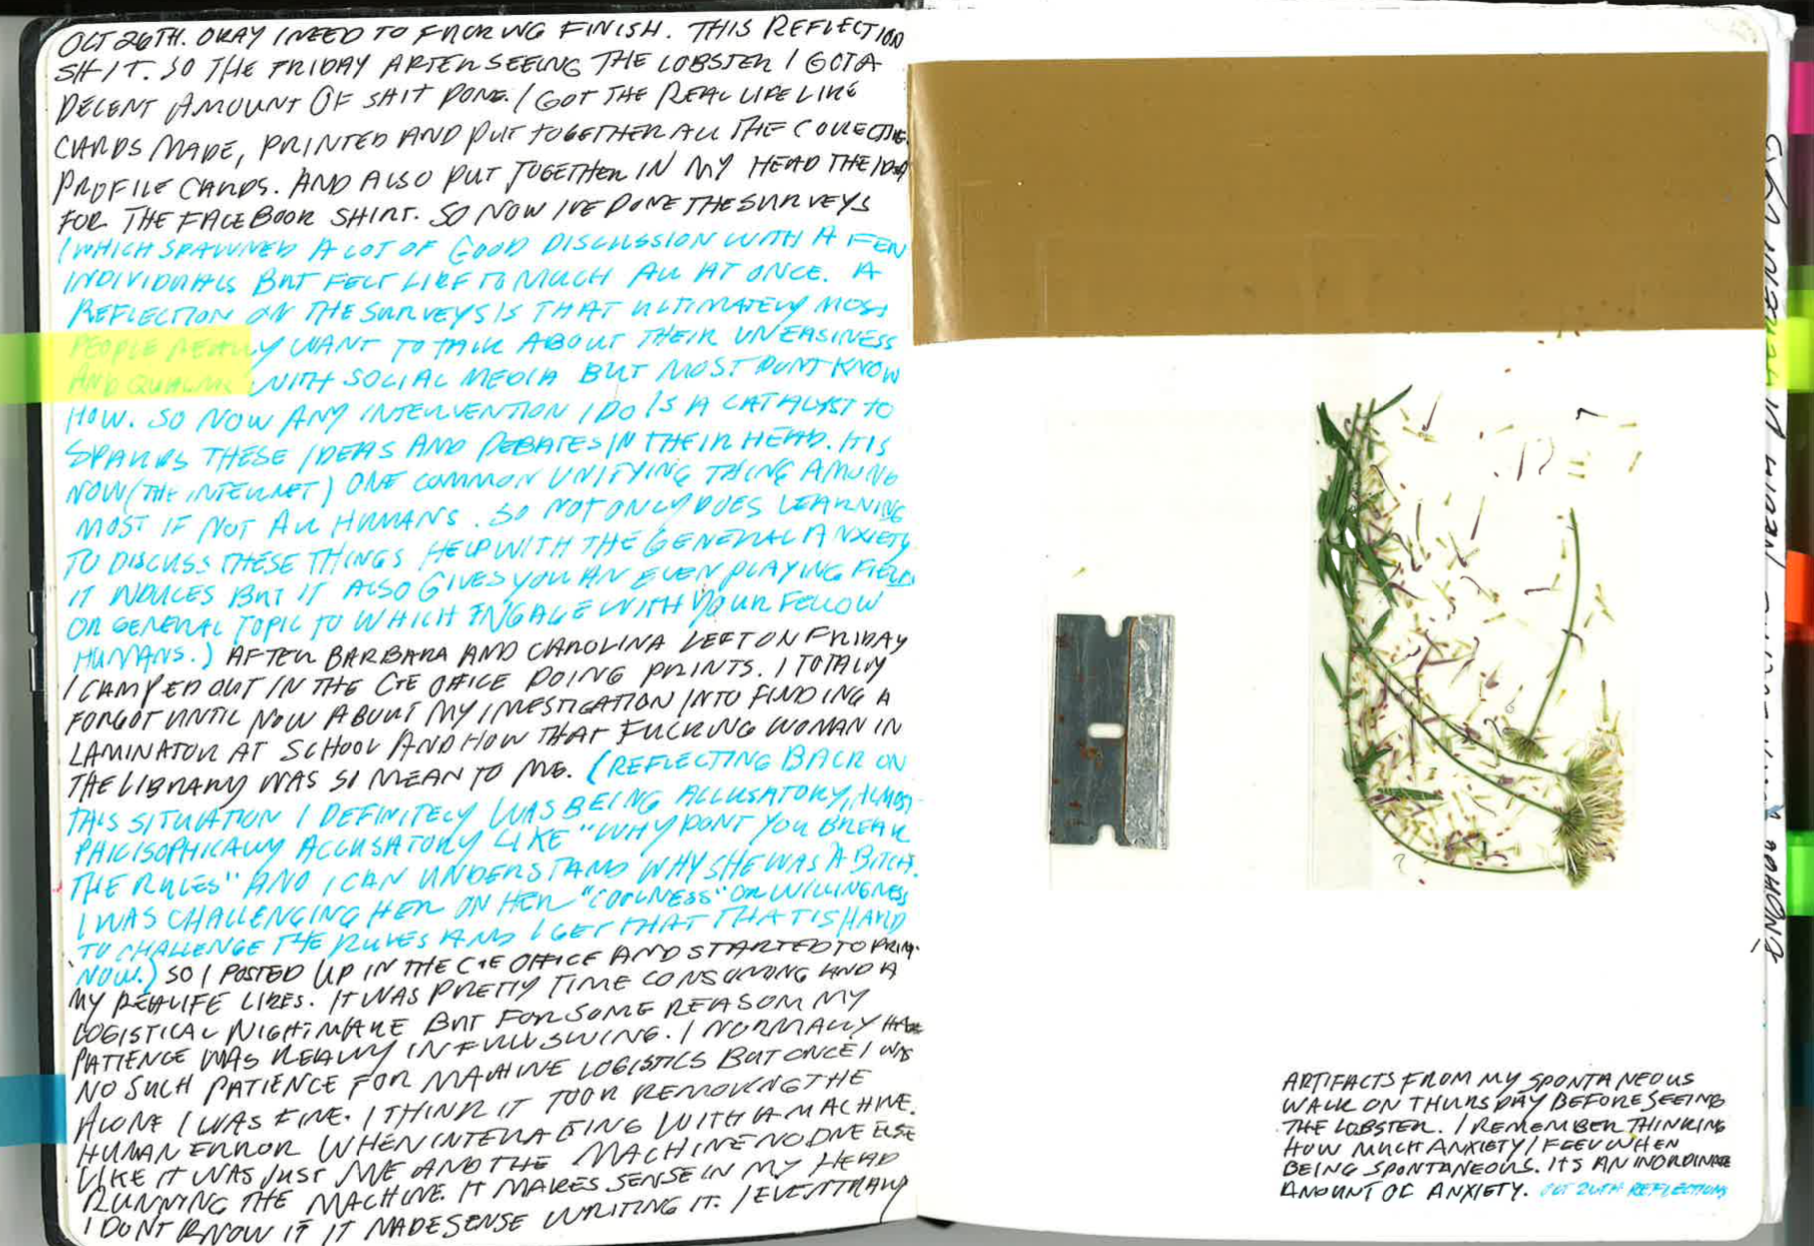 OCT 26TH. OKAY I NEED TO FUCKING FINISH. THIS REFLECTION
SHIT. SO THE FRIDAY AFTER SEEING THE LOBSTER I GOT A
DECENT AMOUNT OF SHIT DONE. I GOT THE REAL LIFE LIKE
CARDS MADE, PRINTED AND PUT TOGETHER ALL THE COLLECTIVE
PROFILE CARDS. AND ALSO PUT TOGETHER IN MY HEAD THE IDEA
FOR THE FACEBOOK SHIRT. SO NOW IVE DONE THE SURVEYS
(WHICH SPAWNED A LOT OF GOOD DISCUSSION WITH A FEW
INDIVIDUALS BUT FELT LIKE TO MUCH ALL AT ONCE. A
REFLECTION ON THE SURVEYS IS THAT ULTIMATELY MOST
PEOPLE REALLY WANT TO TALK ABOUT THEIR UNEASINESS
AND QUALMS WITH SOCIAL MEDIA BUT MOST DONT KNOW
HOW. SO NOW ANY INTERVENTION I DO IS A CATALYST TO
SPARKS THESE IDEAS AND DEBATES IN THEIR HEAD. IT IS
NOW (THE INTERNET) ONE COMMON UNIFYING THING AMONG
MOST IF NOT ALL HUMANS. SO NOT ONLY DOES LEARNING
TO DISCUSS THESE THINGS HELP WITH THE GENERAL ANXIETY
IT INDUCES BUT IT ALSO GIVES YOU AN EVEN PLAYING FIELD
OR GENERAL TOPIC TO WHICH ENGAGE WITH YOUR FELLOW
HUMANS.) AFTER BARBARA AND CAROLINA LEFT ON FRIDAY
I CAMPED OUT IN THE C+E OFFICE DOING PRINTS. I TOTALLY
FORGOT UNTIL NOW ABOUT MY INVESTIGATION INTO FINDING A
LAMINATOR AT SCHOOL AND HOW THAT FUCKING WOMAN IN
THE LIBRARY WAS SO MEAN TO ME. (REFLECTING BACK ON
THIS SITUATION I DEFINITELY WAS BEING ACCUSATORY, ALMOST
PHILISOPHICALLY ACCUSATORY LIKE "WHY DONT YOU BREAK
THE RULES" AND I CAN UNDERSTAND WHY SHE WAS A BITCH.
I WAS CHALLENGING HER ON HER "COOLNESS" OR WILLINGNESS
TO CHALLENGE THE RULES AND I GET THAT THAT IS HARD
NOW.) SO I POSTED UP IN THE C+E OFFICE AND STARTED TO PRINT
MY REALIFE LIKES. IT WAS PRETTY TIME CONSUMING AND A
LOGISTICAL NIGHTMARE BUT FOR SOME REASON MY
PATIENCE WAS REALLY IN FULL SWING. I NORMALLY HAVE
NO SUCH PATIENCE FOR MACHINE LOGISTICS BUT ONCE I WAS
ALONE I WAS FINE. I THINK IT TOOK REMOVING THE
HUMAN ERROR WHEN INTERACTING WITH A MACHINE.
LIKE IT WAS JUST ME AND THE MACHINE NO ONE ELSE
RUNNING THE MACHINE. IT MAKES SENSE IN MY HEAD
I DONT KNOW IF IT MADE SENSE WRITING IT. I EVENTUALLY
ARTIFACTS FROM MY SPONTANEOUS
WALK ON THURSDAY BEFORE SEEING
THE LOBSTER. I REMEMBER THINKING
HOW MUCH ANXIETY I FEEL WHEN
BEING SPONTANEOUS. ITS AN INORDINATE
AMOUNT OF ANXIETY. OCT 26TH REFLECTIONS